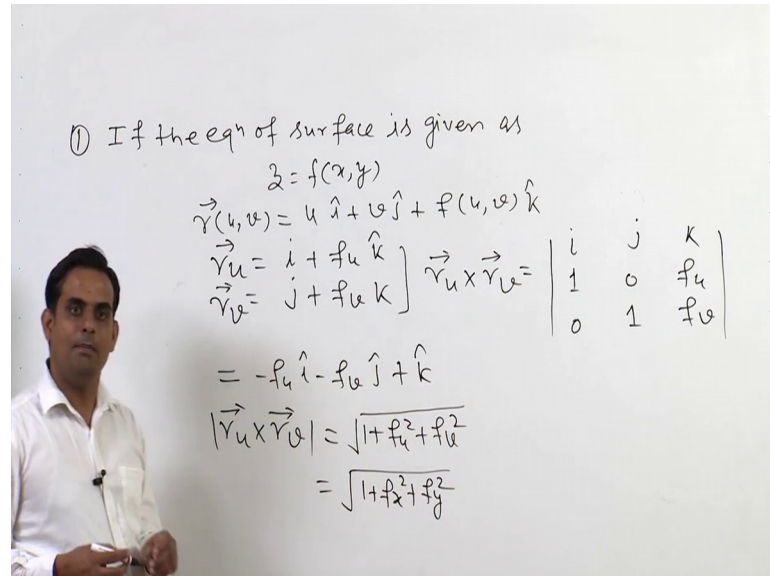 ① If the eqⁿ of surface is given as
z = f(x,y)
r⃗(u,v) = u î + v ĵ + f(u,v) k̂
r⃗u = i + fu k̂
r⃗v = j + fv k ] r⃗u × r⃗v = | i j k |
| 1 0 fu |
| 0 1 fv |
= -fu î - fv ĵ + k̂
|r⃗u × r⃗v| = √(1 + fu² + fv²)
= √(1 + fx² + fy²)